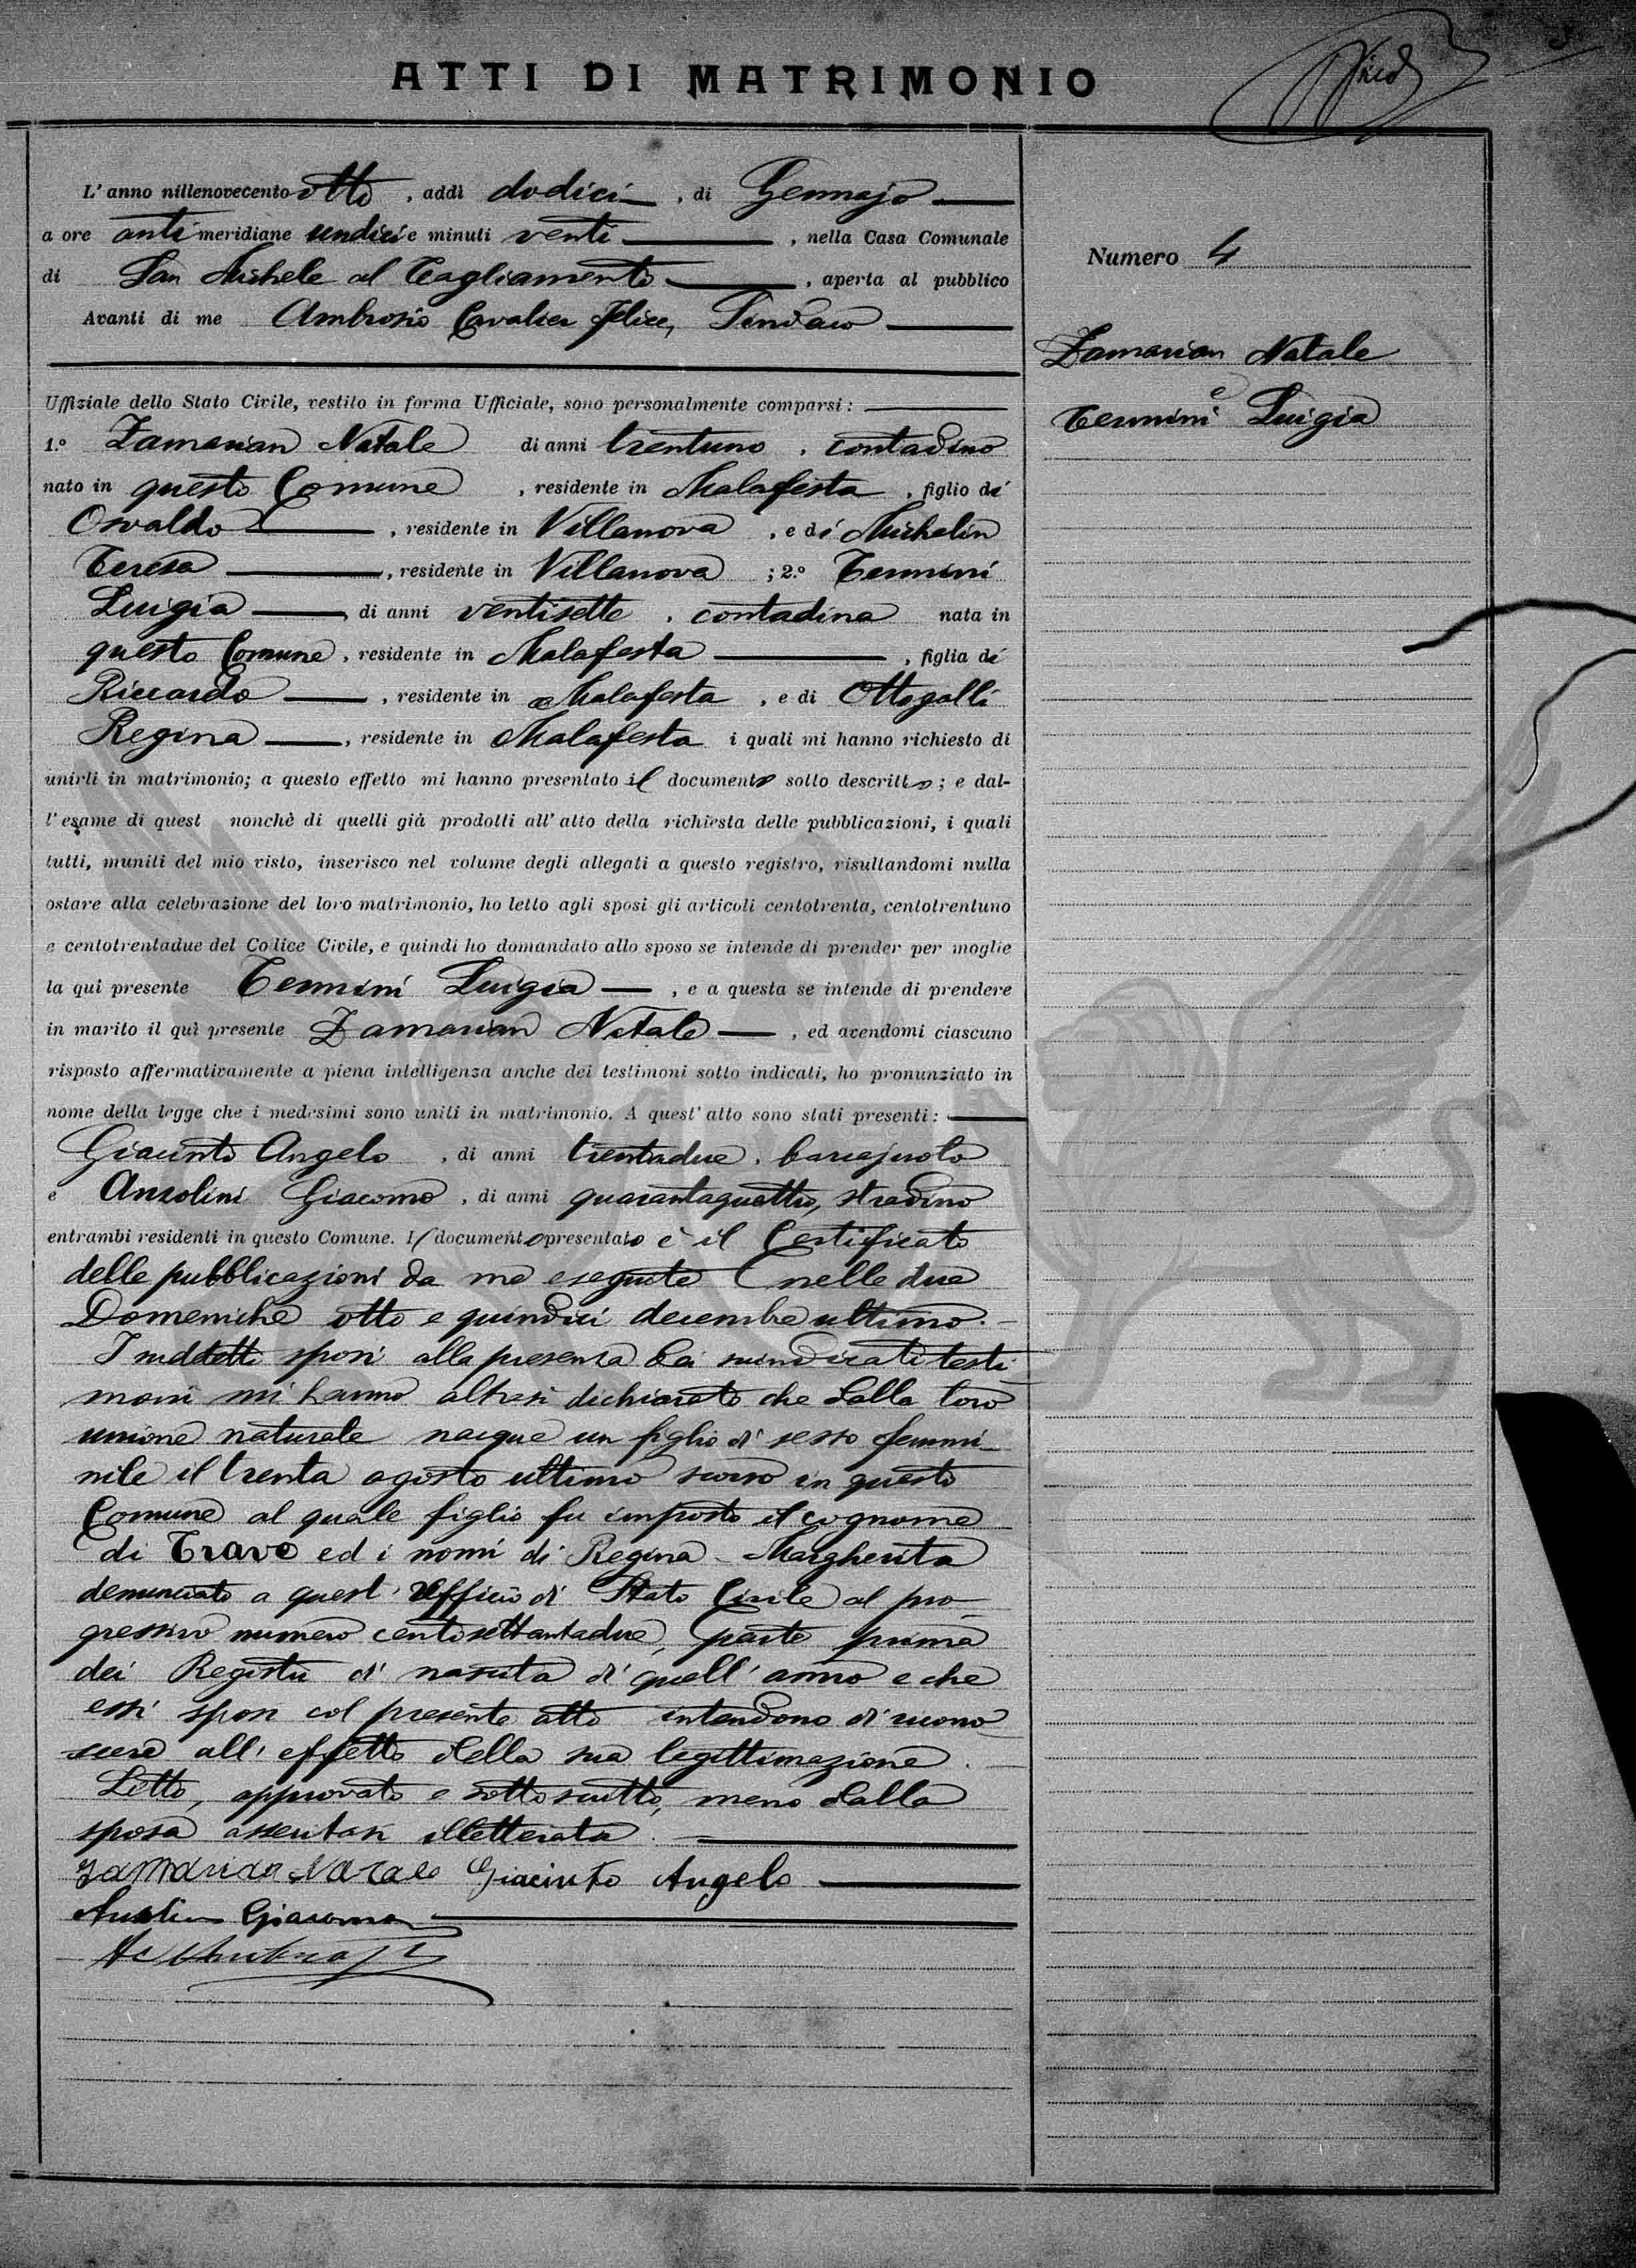 ATTI DI MATRIMONIO
L'anno nillenovecento otto, addì dodici, di Gennajo
a ore antimeridiane undici e minuti venti, nella Casa Comunale
di San Michele al Tagliamento, aperta al pubblico
Avanti di me Ambrosio Cavalier Felice, Sindaco
Uffiziale dello Stato Civile, vestito in forma Ufficiale, sono personalmente comparsi:
1.° Zamarian Natale di anni trentuno, contadino
nato in questo Comune, residente in Malafesta, figlio di
Osvaldo, residente in Villanova, e di Michelin
Teresa, residente in Villanova; 2.° Termini
Luigia di anni ventisette, contadina nata in
questo Comune, residente in Malafesta, figlia di
Riccardo, residente in Malafesta, e di Ottogalli
Regina, residente in Malafesta i quali mi hanno richiesto di
unirli in matrimonio; a questo effetto mi hanno presentato il documento sotto descritto; e dal-
l'esame di quest nonchè di quelli già prodotti all'atto della richiesta delle pubblicazioni, i quali
tutti, muniti del mio visto, inserisco nel volume degli allegati a questo registro, risultandomi nulla
ostare alla celebrazione del loro matrimonio, ho letto agli sposi gli articoli centotrenta, centotrentuno
e centotrentadue del Codice Civile, e quindi ho domandato allo sposo se intende di prender per moglie
la quì presente Termini Luigia, e a questa se intende di prendere
in marito il quì presente Zamarian Natale, ed avendomi ciascuno
risposto affermativamente a piena intelligenza anche dei testimoni sotto indicati, ho pronunziato in
nome della legge che i medesimi sono uniti in matrimonio. A quest'atto sono stati presenti:
Giacinto Angelo, di anni trentadue, barcajuolo
e Anzolini Giacomo, di anni quarantaquattro, stradino
entrambi residenti in questo Comune. Il documento presentato è il Certificato
delle pubblicazioni da me eseguite nelle due
Domeniche otto e quindici decembre ultimo.
I suddetti sposi alla presenza dei suindicati testi
moni mi hanno altresì dichiarato che dalla loro
unione naturale nacque un figlio di sesso femmi-
nile il trenta agosto ultimo scorso in questo
Comune al quale figlio fu imposto il cognome
di Travo ed i nomi di Regina Margherita
denunciato a quest'Ufficio di Stato Civile al pro-
gressivo numero centosettantadue, parte prima
dei Registri di nascita di quell'anno e che
essi sposi col presente atto intendono di ricono
scere all'effetto della sua legittimazione.
Letto, approvato e sottoscritto, meno dalla
sposa assentasi illetterata.
Zamarian Natale Giacinto Angelo
Giacomo
Numero 4
Zamarian Natale
e
Termini Luigia